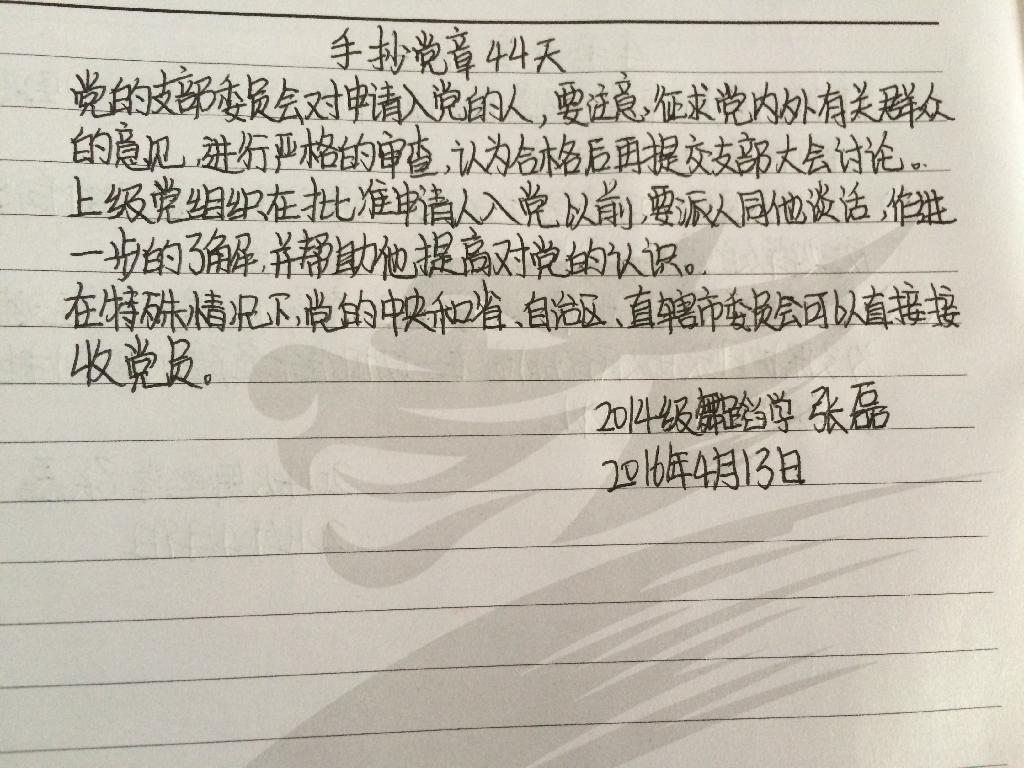 手抄党章44天
党的支部委员会对申请入党的人，要注意征求党内外有关群众
的意见，进行严格的审查，认为合格后再提交支部大会讨论。
上级党组织在批准申请人入党以前，要派人同他谈话，作进
一步的了解，并帮助他提高对党的认识。
在特殊情况下，党的中央和省、自治区、直辖市委员会可以直接接
收党员。
2014级舞蹈学 张磊
2016年4月13日